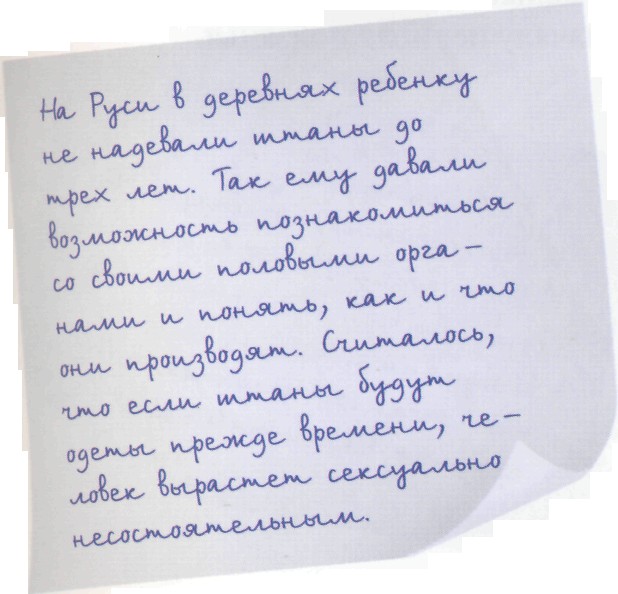 На Руси в деревнях ребенку
не надевали штаны до
трех лет. Так ему давали
возможность познакомиться
со своими половыми орга-
нами и понять, как и что
они производят. Считалось,
что если штаны будут
одеты прежде времени, че-
ловек вырастет сексуально
несостоятельным.